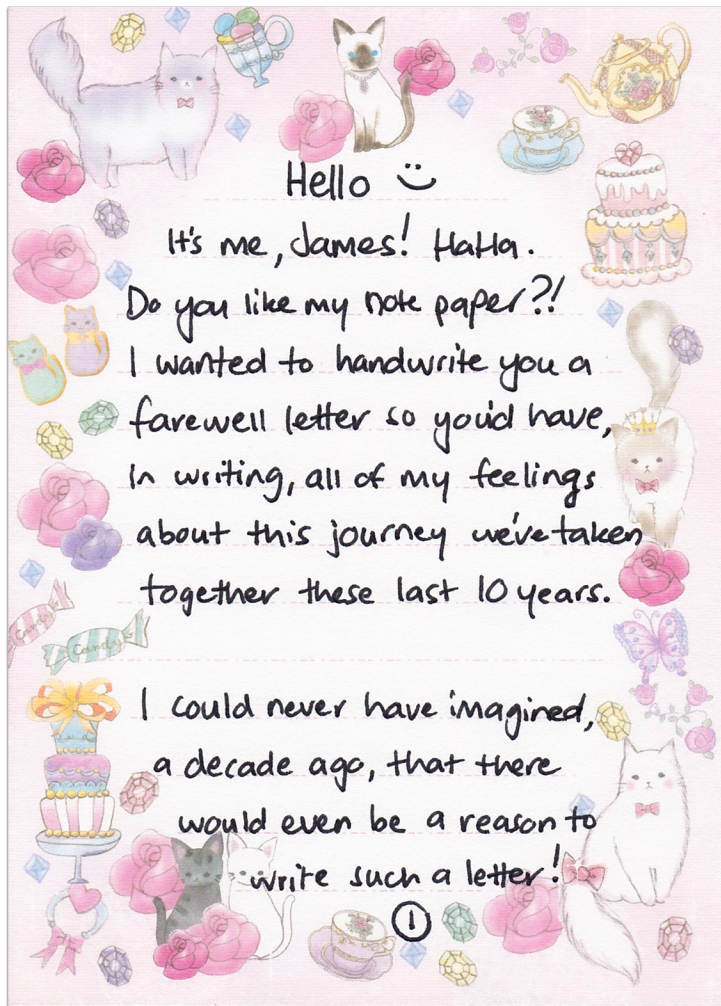 Hello :)
It's me, James! HaHa.
Do you like my note paper?!
I wanted to handwrite you a
farewell letter so you'd have,
in writing, all of my feelings
about this journey we've taken
together these last 10 years.
I could never have imagined,
a decade ago, that there
would even be a reason to
write such a letter!
Candy
Candy
①